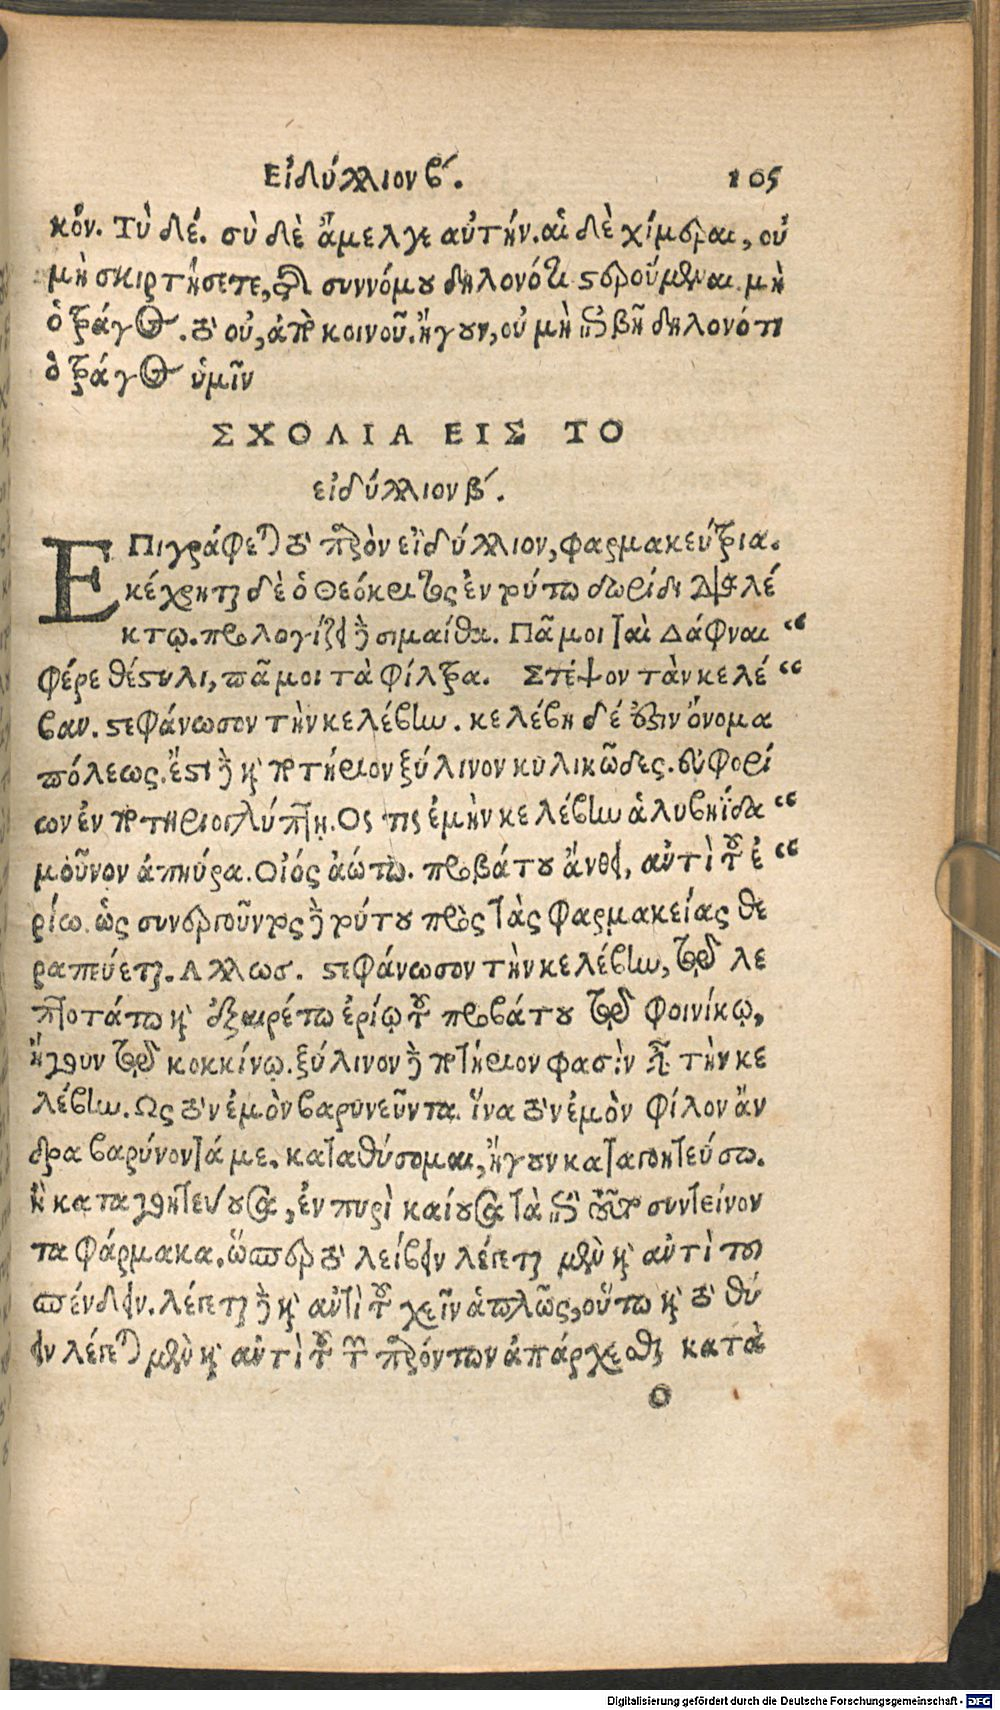 Εἰδύλλιον β΄. 105
κόν. Τὺ δέ. σὺ δὲ ἄμελγε αὐτήν. αἱ δὲ χίμαιραι, οὐ
μὴ σκιρτήσετε, διὰ συννόμου δηλονότι στερούμεναι μὴ
ὁ τράγος. τὸ οὐ, ἀπὸ κοινοῦ. ἤγουν, οὐ μὴ ἐπιβῇ δηλονότι
ὁ τράγος ὑμῖν
ΣΧΟΛΙΑ ΕΙΣ ΤΟ
εἰδύλλιον β΄.
ΕΠιγράφεται τὸ παρὸν εἰδύλλιον, φαρμακεύτρια.
κέχρηται δὲ ὁ Θεόκριτος ἐν τούτῳ δωρίδι διαλέ
κτῳ. προλογίζει γὰρ σιμαίθα. Πᾶ μοι ταὶ Δάφναι “
φέρε θέστυλι, πᾶ μοι τὰ φίλτρα. Στέψον τὰν κελέ “
βαν. στεφάνωσον τὴν κελέβην. κελέβη δέ ἐστιν ὄνομα
πόλεως. ἔστι γὰρ καὶ ποτήριον ξύλινον κυλικῶδες. εὐφορί
ων ἐν ποτηριοκλέπτῃ. Ος τις ἐμὴν κελέβην ἀλυβηΐδα “
μοῦνον ἀπηύρα. Οἰός ἀώτῳ. προβάτου ἄνθει, ἀντὶ τοῦ ἐ “
ρίῳ. ὡς συνεργοῦντος γὰρ τούτου πρὸς τὰς φαρμακείας θε
ραπεύεται. Αλλως. στεφάνωσον τὴν κελέβην, τῷ λε
πτοτάτῳ καὶ ἐξαιρέτῳ ἐρίῳ τοῦ προβάτου τῷ φοινίκῳ,
ἤγουν τῷ κοκκίνῳ. ξύλινον γὰρ ποτήριον φασὶν εἶναι τὴν κε
λέβην. Ως τὸν ἐμὸν βαρυνεῦντα. ἵνα τὸν ἐμὸν φίλον ἄν
δρα βαρύνοντά με, καταθύσομαι, ἤγουν καταγοητεύσω.
ἢ καταγοητεύουσα, ἐν πυρὶ καίουσα τὰ ἐπὶ τοῦτο συντείνον
τα φάρμακα. ὥσπερ τὸ λείβειν λέγεται μὲν καὶ ἀντὶ τοῦ
σπένδειν. λέγεται γὰρ καὶ ἀντὶ τοῦ χεῖν ἁπλῶς, οὕτω καὶ τὸ θύ
ειν λέγεται μὲν καὶ ἀντὶ τοῦ τῶν παρόντων ἀπάρχεσθαι κατὰ
ο
Digitalisierung gefördert durch die Deutsche Forschungsgemeinschaft - DFG